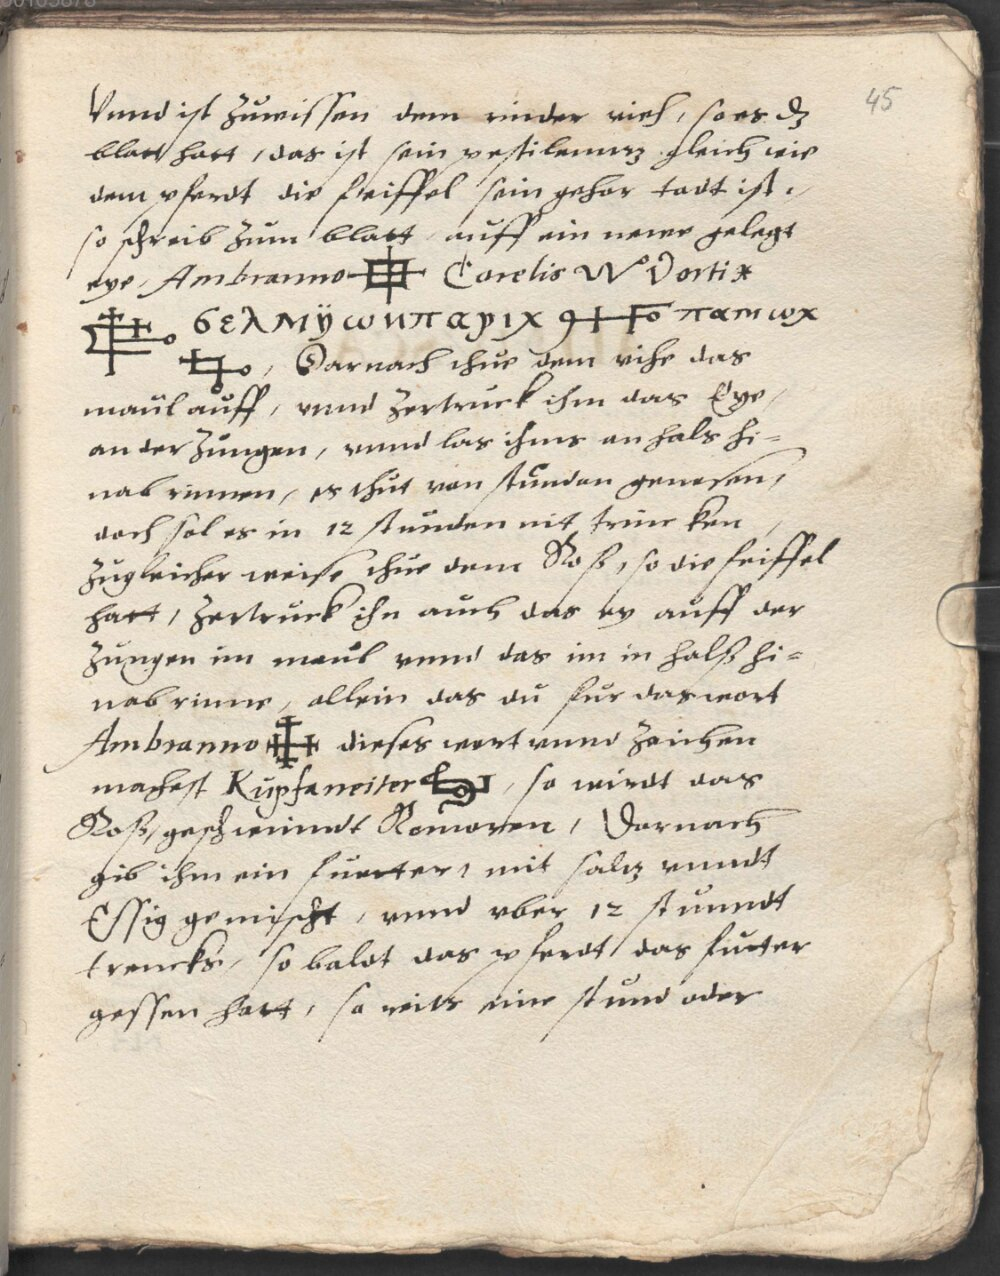 45
Vnnd ist zuwissen dem rinder vieh, so es dz
blatt hatt, das ist sein pestilenntz gleich wie
dem pferdt die feiffel sein gehor tadt ist,
so schreib zum blatt auff ein new gelegt
eye, Ambranno Carelis Wo Vortix
βελμÿωиπαριχ παmωχ
Darnach thue dem vihe das
maul auff, vnnd zertruck ihm das Eye,
an der zungen, vnnd las ihms an hals hi-
nab rinnen, es thut von stundan genesen,
doch sol es in 12 stunden nit trincken
Zugleicher weise thue dem Roß, so die feiffel
hatt, zertruck ihn auch das ey auff der
Zungen im maul vnnd das im in halß hi-
nab rinne, allein das du fur das wort
Ambranno dieses wort vnnd zaichen
machest Kupfaneiter, so wirdt das
Roß, geschwinndt Romoren, Darnach
gib ihm ein fuotter, mit saltz vnndt
Essig gemischt, vnnd vber 12 stunndt
trencks, so baldt das pferdt das futter
gessen hatt, so reits eine stund oder